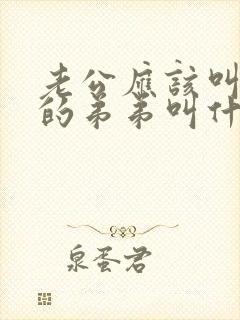 老公應該叫
的弟弟叫什
泉蛋君